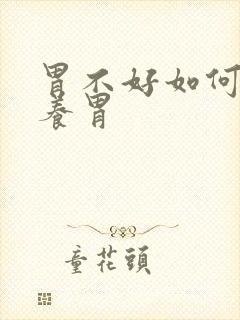 胃不好如何
养胃
童花頭